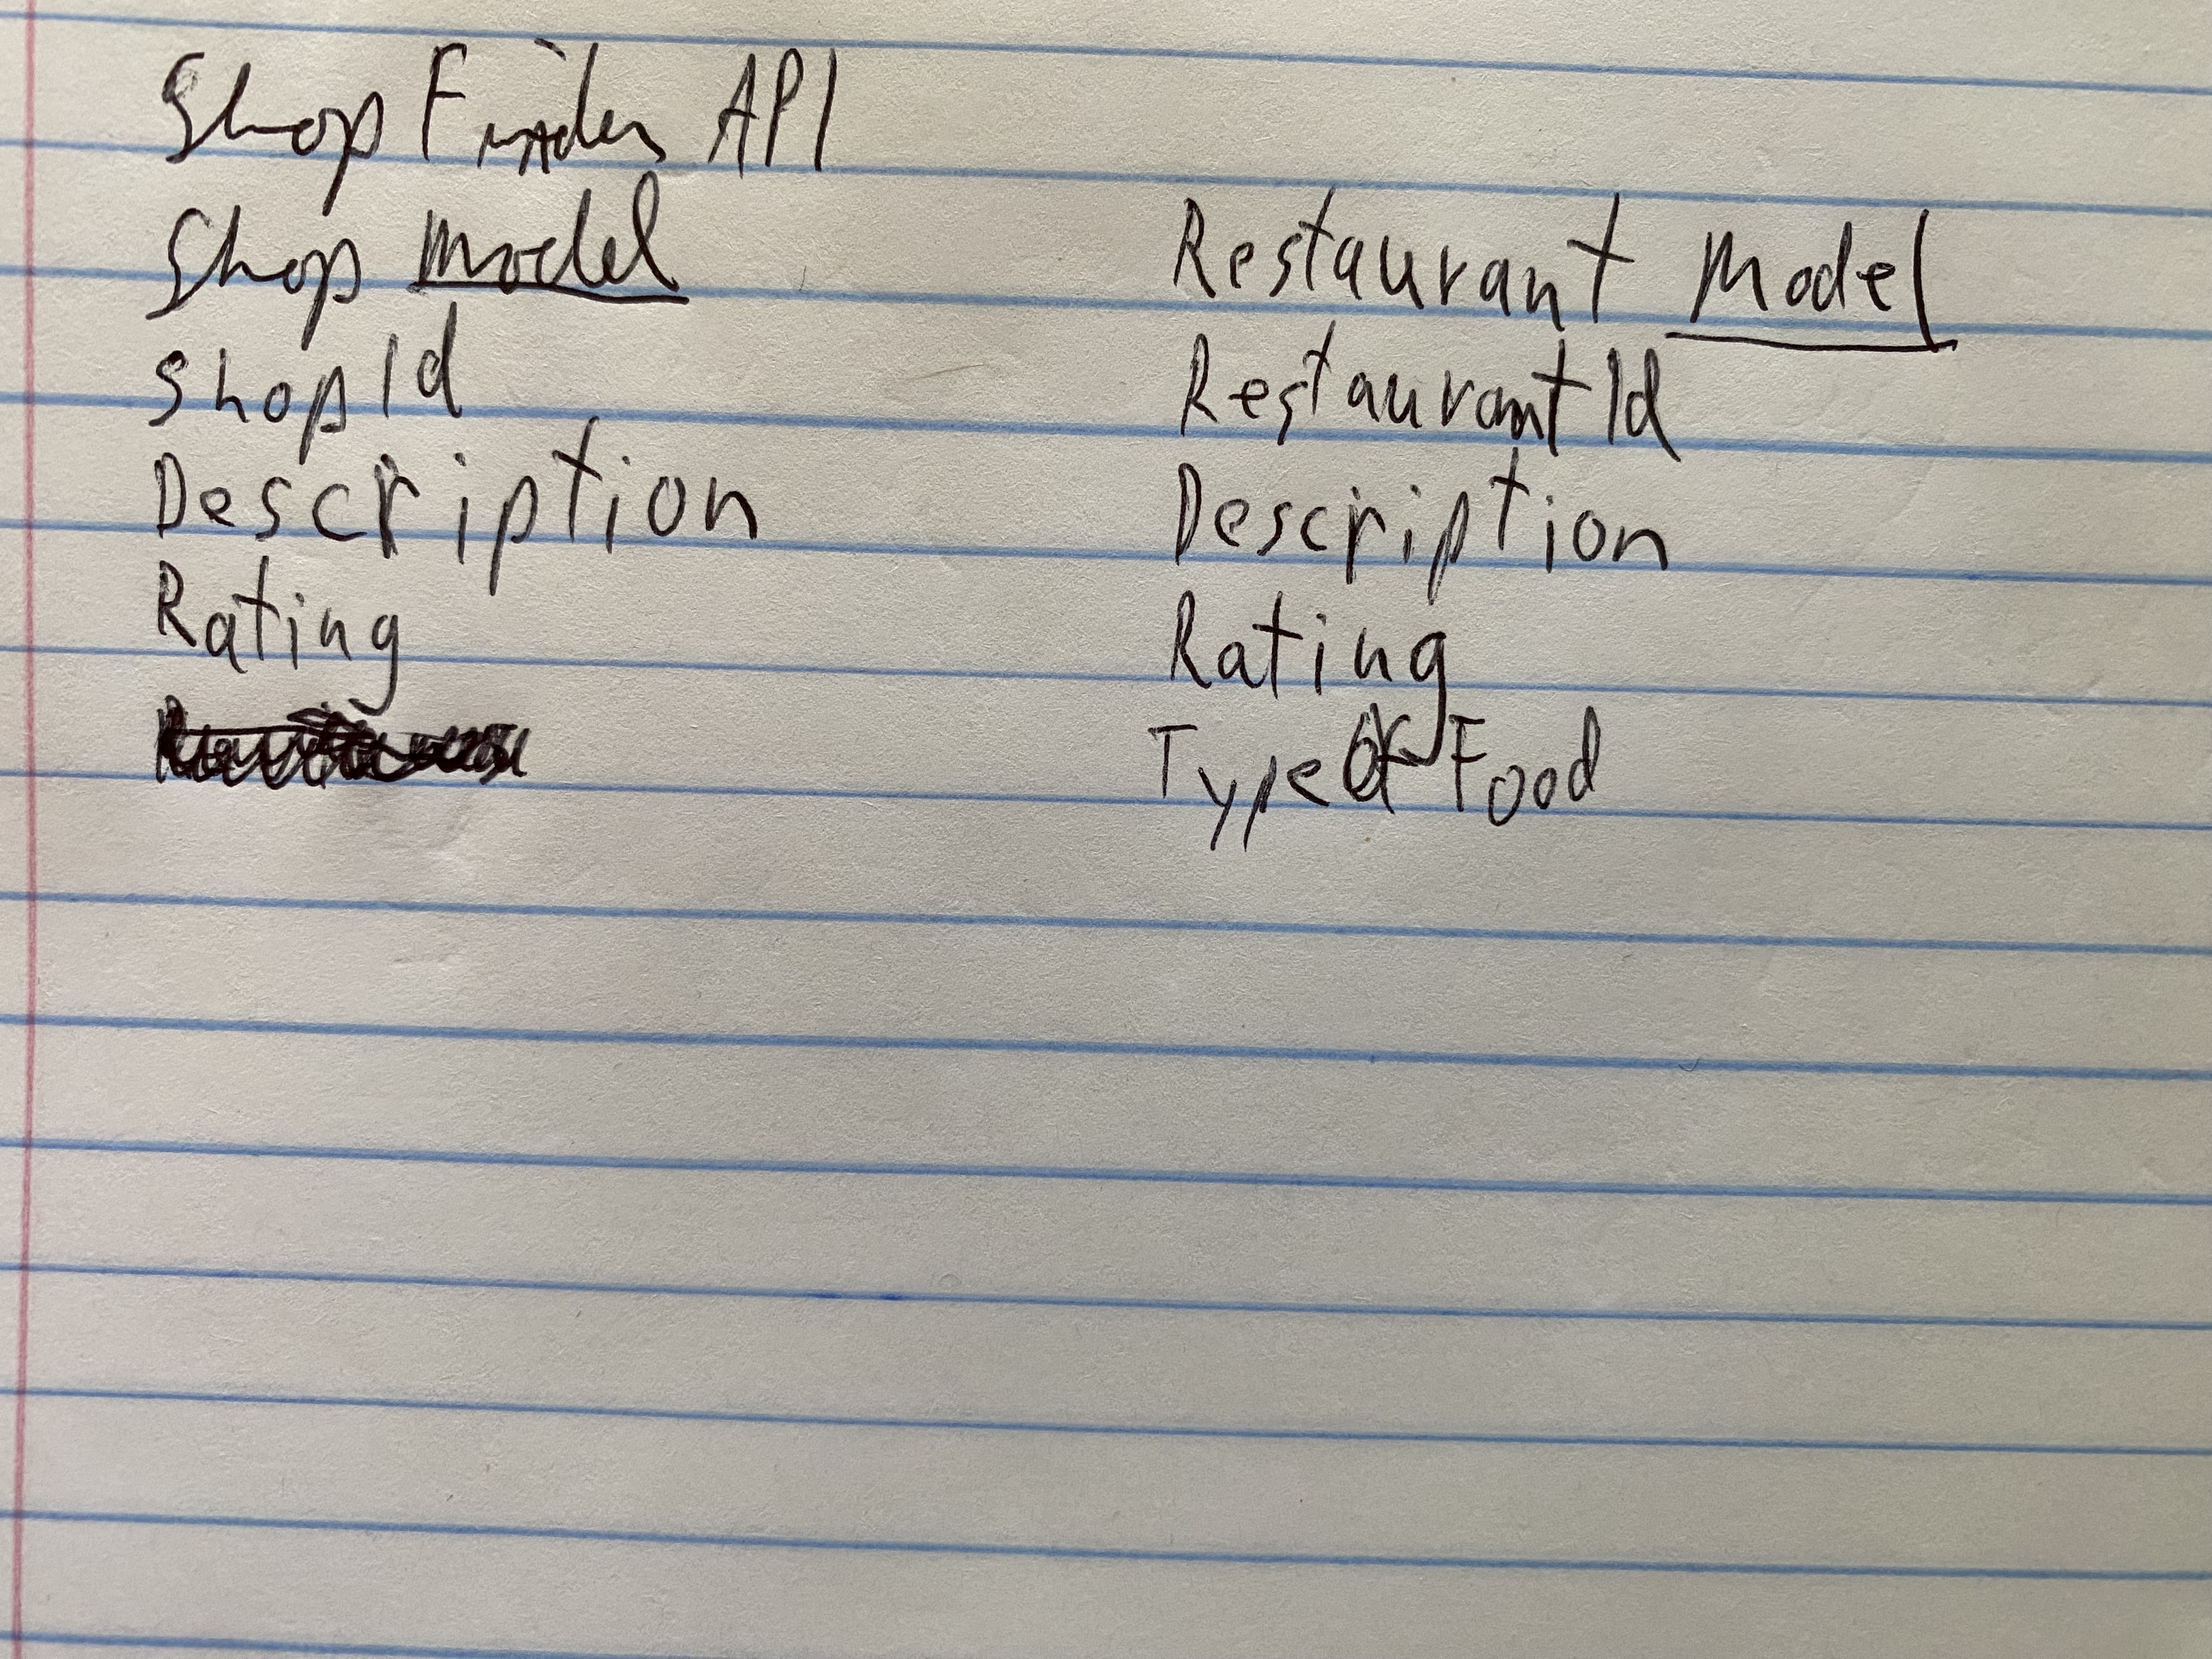 Shop Finder API
Shop Model
ShopId
Description
Rating
Restaurant Model
RestaurantId
Description
Rating
TypeOfFood